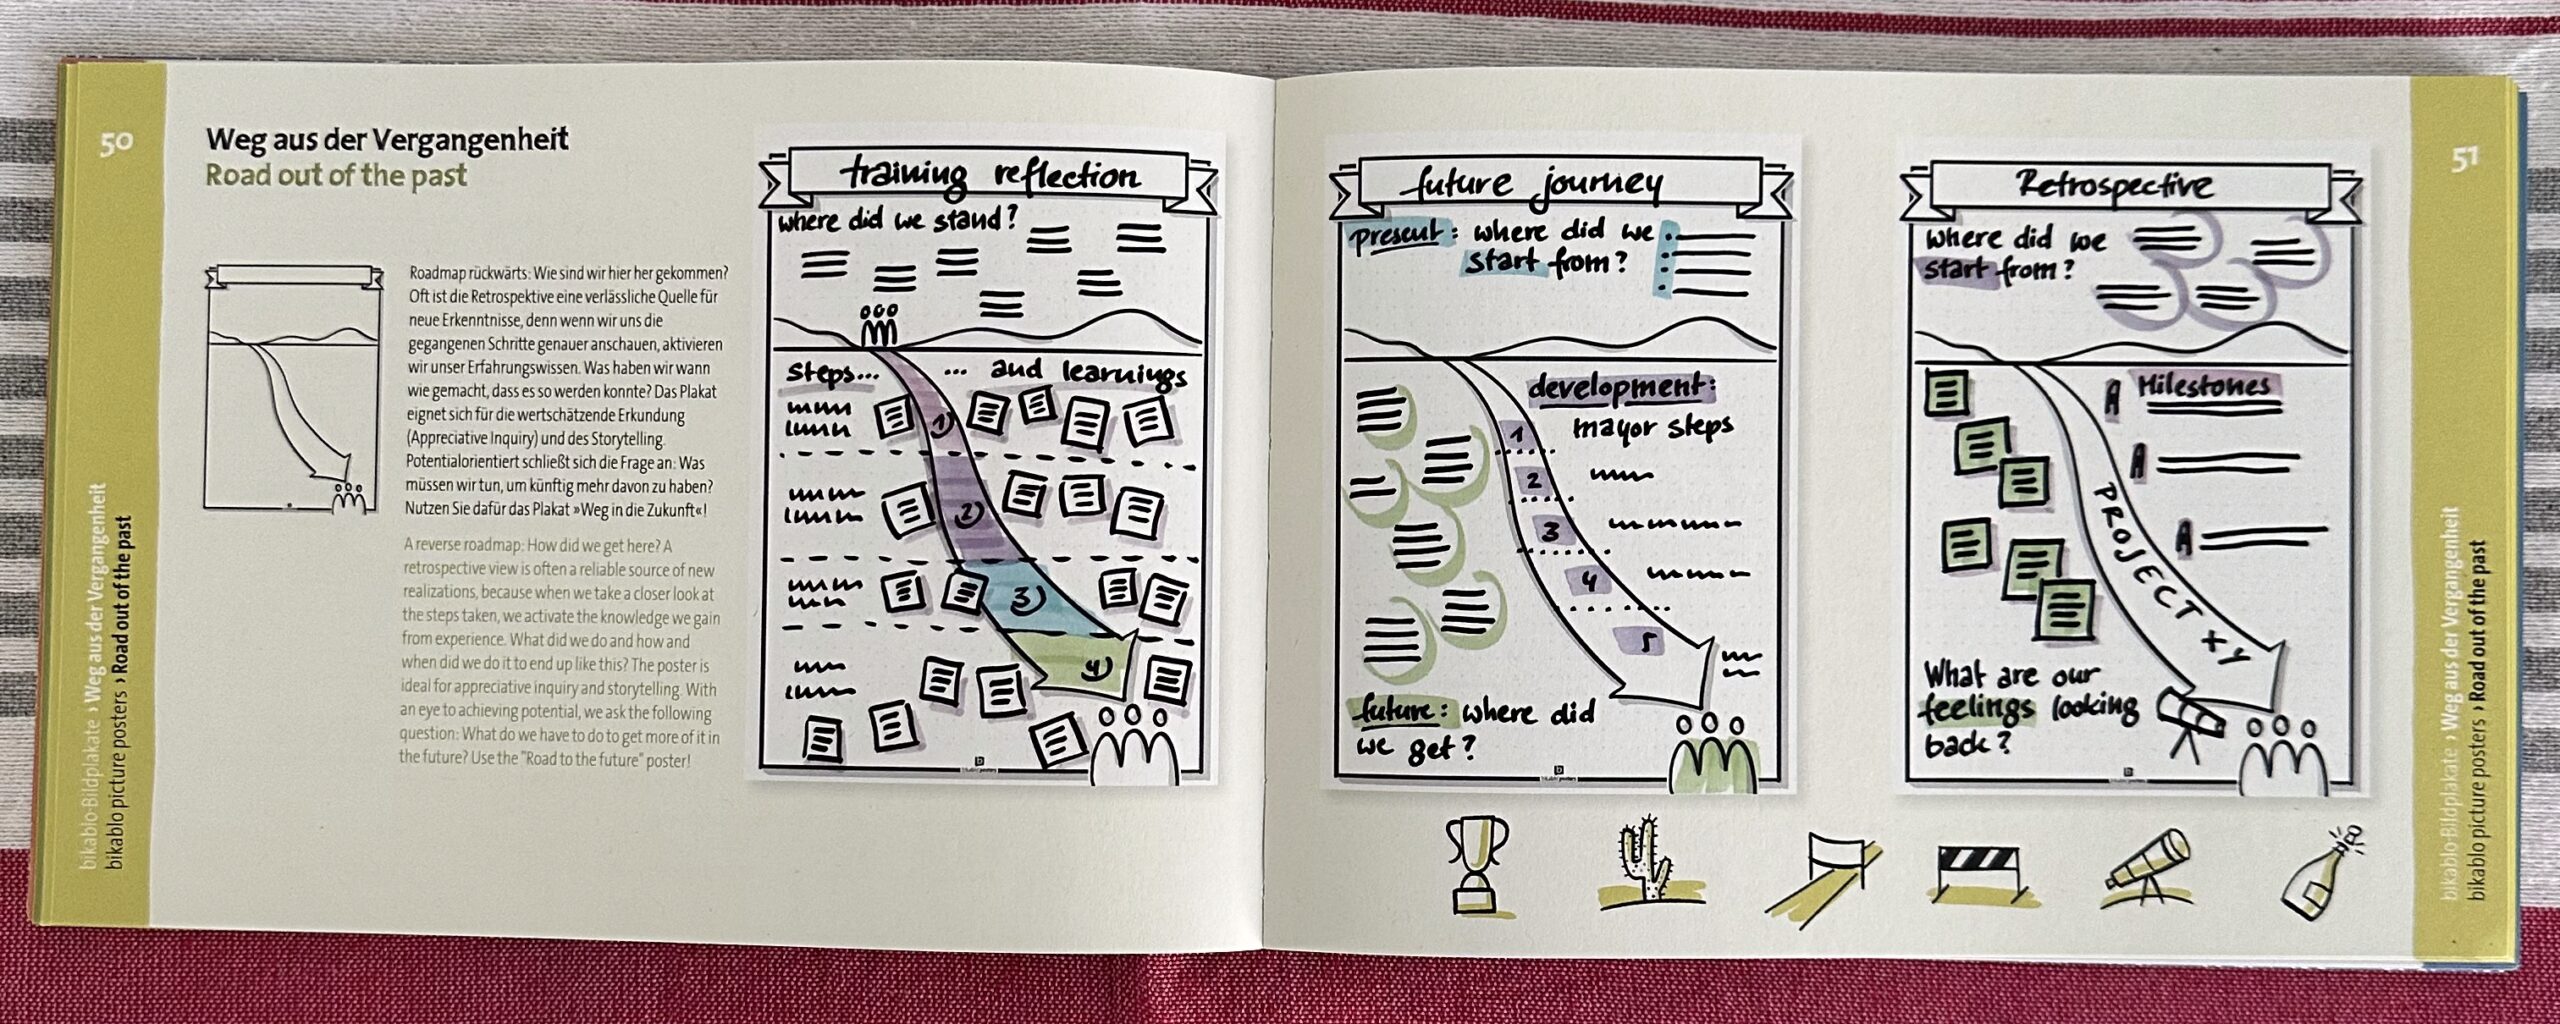 50
Weg aus der Vergangenheit
Road out of the past
Roadmap rückwärts: Wie sind wir hier her gekommen?
Oft ist die Retrospektive eine verlässliche Quelle für
neue Erkenntnisse, denn wenn wir uns die
gegangenen Schritte genauer anschauen, aktivieren
wir unser Erfahrungswissen. Was haben wir wann
wie gemacht, dass es so werden konnte? Das Plakat
eignet sich für die wertschätzende Erkundung
(Appreciative Inquiry) und des Storytelling.
Potentialorientiert schließt sich die Frage an: Was
müssen wir tun, um künftig mehr davon zu haben?
Nutzen Sie dafür das Plakat »Weg in die Zukunft«!
A reverse roadmap: How did we get here? A
retrospective view is often a reliable source of new
realizations, because when we take a closer look at
the steps taken, we activate the knowledge we gain
from experience. What did we do and how and
when did we do it to end up like this? The poster is
ideal for appreciative inquiry and storytelling. With
an eye to achieving potential, we ask the following
question: What do we have to do to get more of it in
the future? Use the "Road to the future" poster!
bikablo Bildplakate › Weg aus der Vergangenheit
bikablo picture posters › Road out of the past
training reflection
where did we stand?
steps... ... and learnings
1)
2)
3)
4)
future journey
present: where did we
start from?
development:
mayor steps
1
2
3
4
5
future: where did
we get?
Retrospective
where did we
start from?
Milestones
PROJECT XY
What are our
feelings looking
back?
51
bikablo Bildplakate › Weg aus der Vergangenheit
bikablo picture posters › Road out of the past